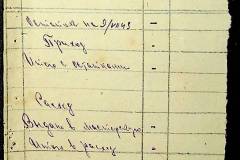 Остаток на 9/VII 43 -
Приход -
Итого с остатком -
Расход
Выдано в мастерскую -
Итого в расход -